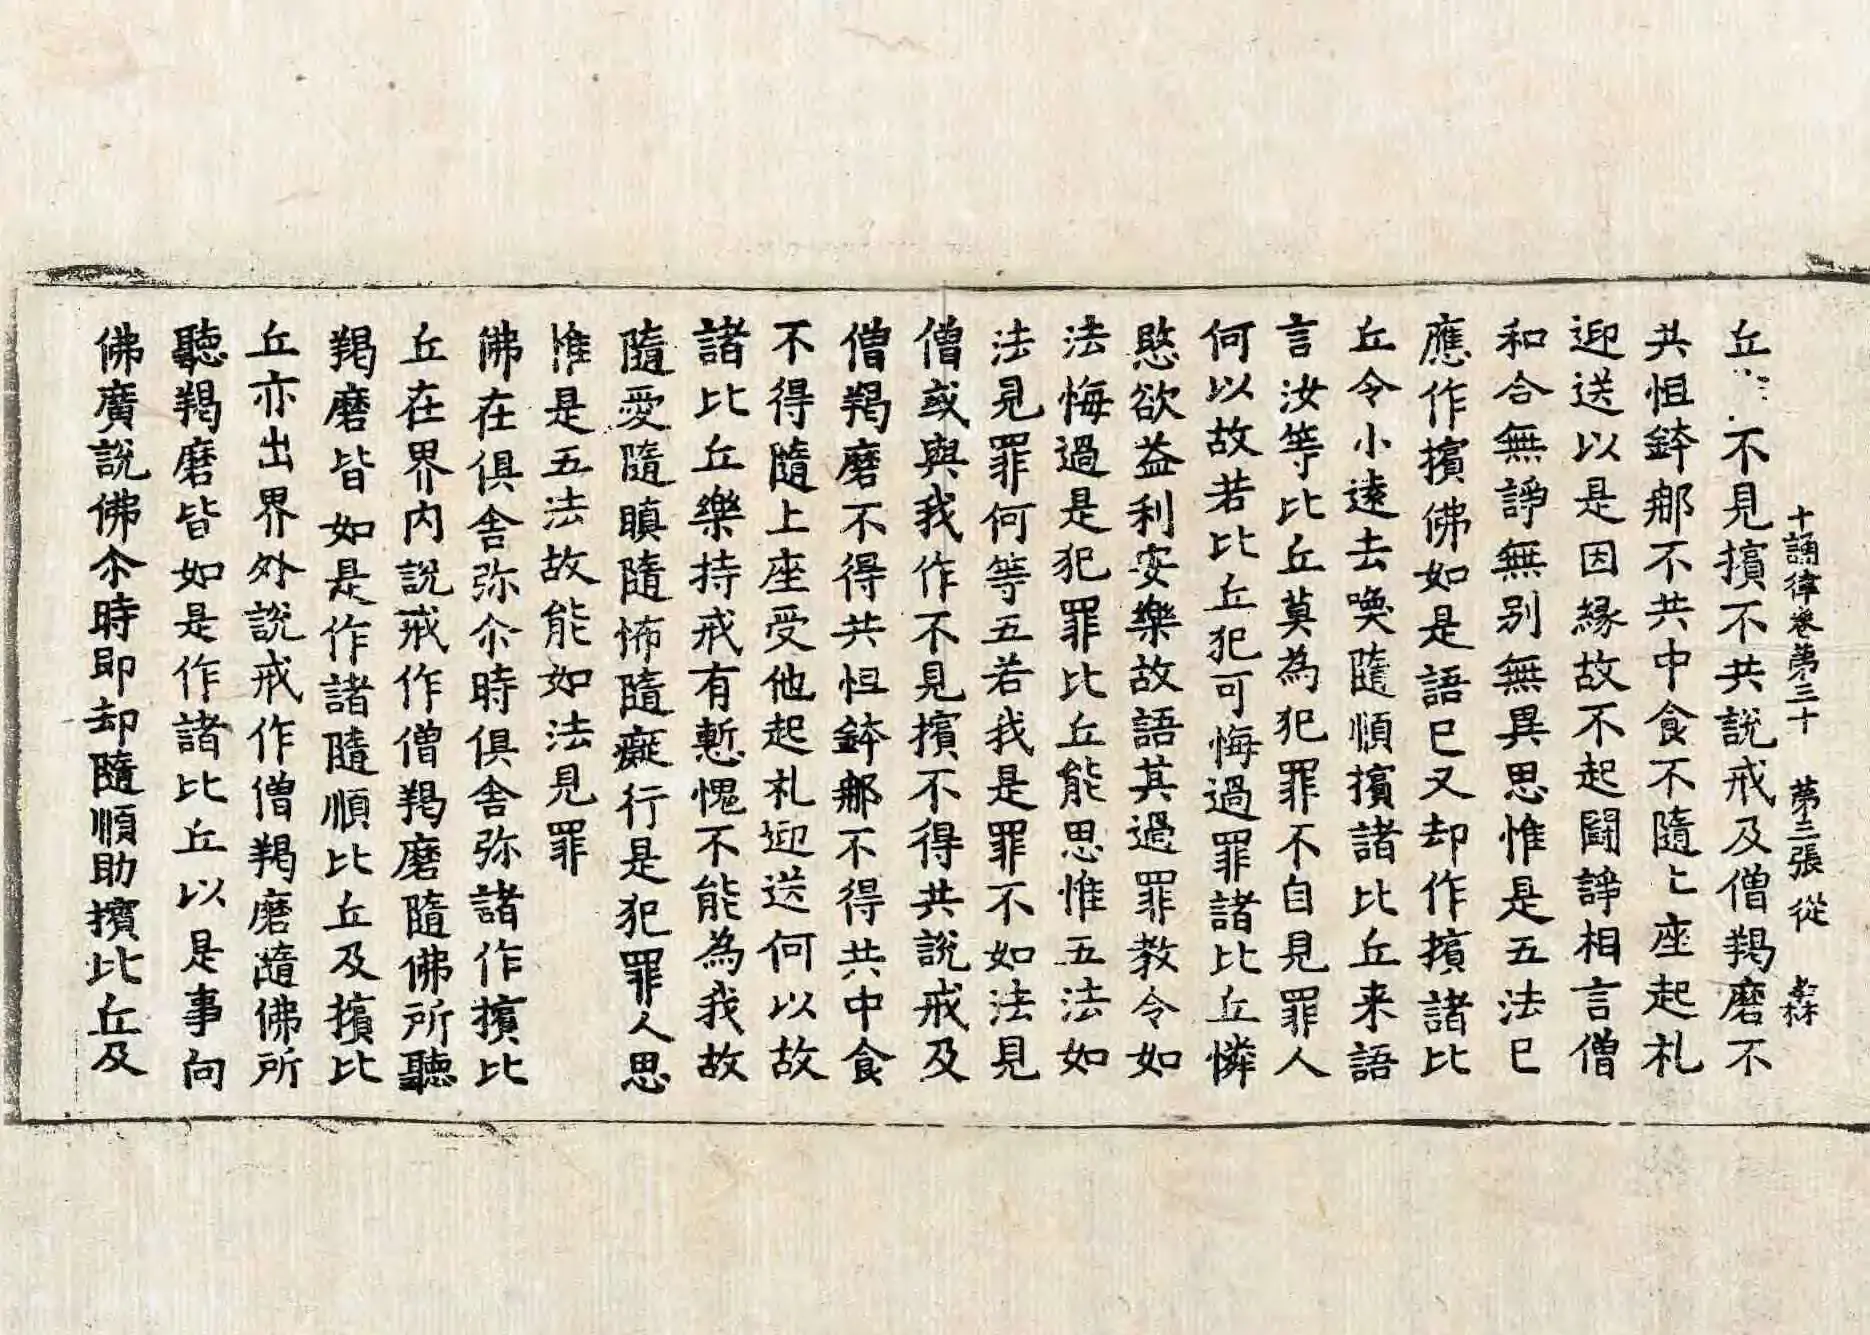 十誦律卷第三十　第三張　從
丘不見擯不共說戒及僧羯磨不
共怛鉢那不共中食不隨上座起礼
迎送以是因縁故不起鬪諍相言僧
和合無諍無別無異思惟是五法已
應作擯佛如是語已又却作擯諸比
丘令小遠去喚隨順擯諸比丘来語
言汝等比丘莫為犯罪不自見罪人
何以故若比丘犯可悔過罪諸比丘憐
愍欲益利安樂故語其過罪教令如
法悔過是犯罪比丘能思惟五法如
法見罪何等五若我是罪不如法見
僧或與我作不見擯不得共說戒及
僧羯磨不得共怛鉢那不得共中食
不得隨上座受他起礼迎送何以故
諸比丘樂持戒有慙愧不能為我故
隨愛隨瞋隨怖隨癡行是犯罪人思
惟是五法故能如法見罪
佛在俱舍弥尒時俱舍弥諸作擯比
丘在界内說戒作僧羯磨隨佛所聽
羯磨皆如是作諸隨順比丘及擯比
丘亦出界外說戒作僧羯磨隨佛所
聽羯磨皆如是作諸比丘以是事向
佛廣說佛尒時即却隨順助擯比丘及